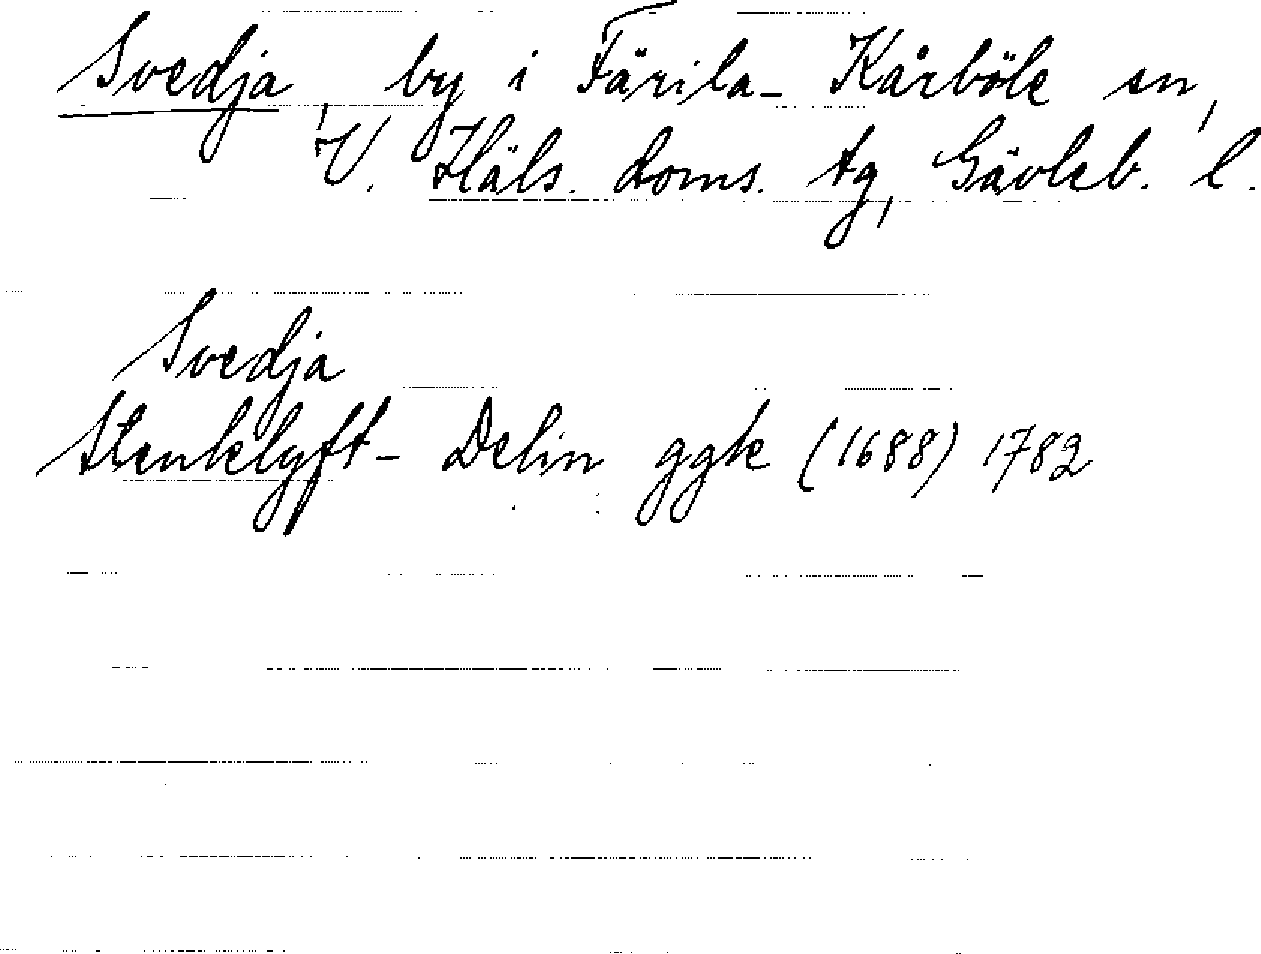 Svedja, by i Färila-Kårböle sn,
V. Häls. doms. tg, Gävleb. l.
Svedja
Stenklyft- Delin ggk (1688) 1782